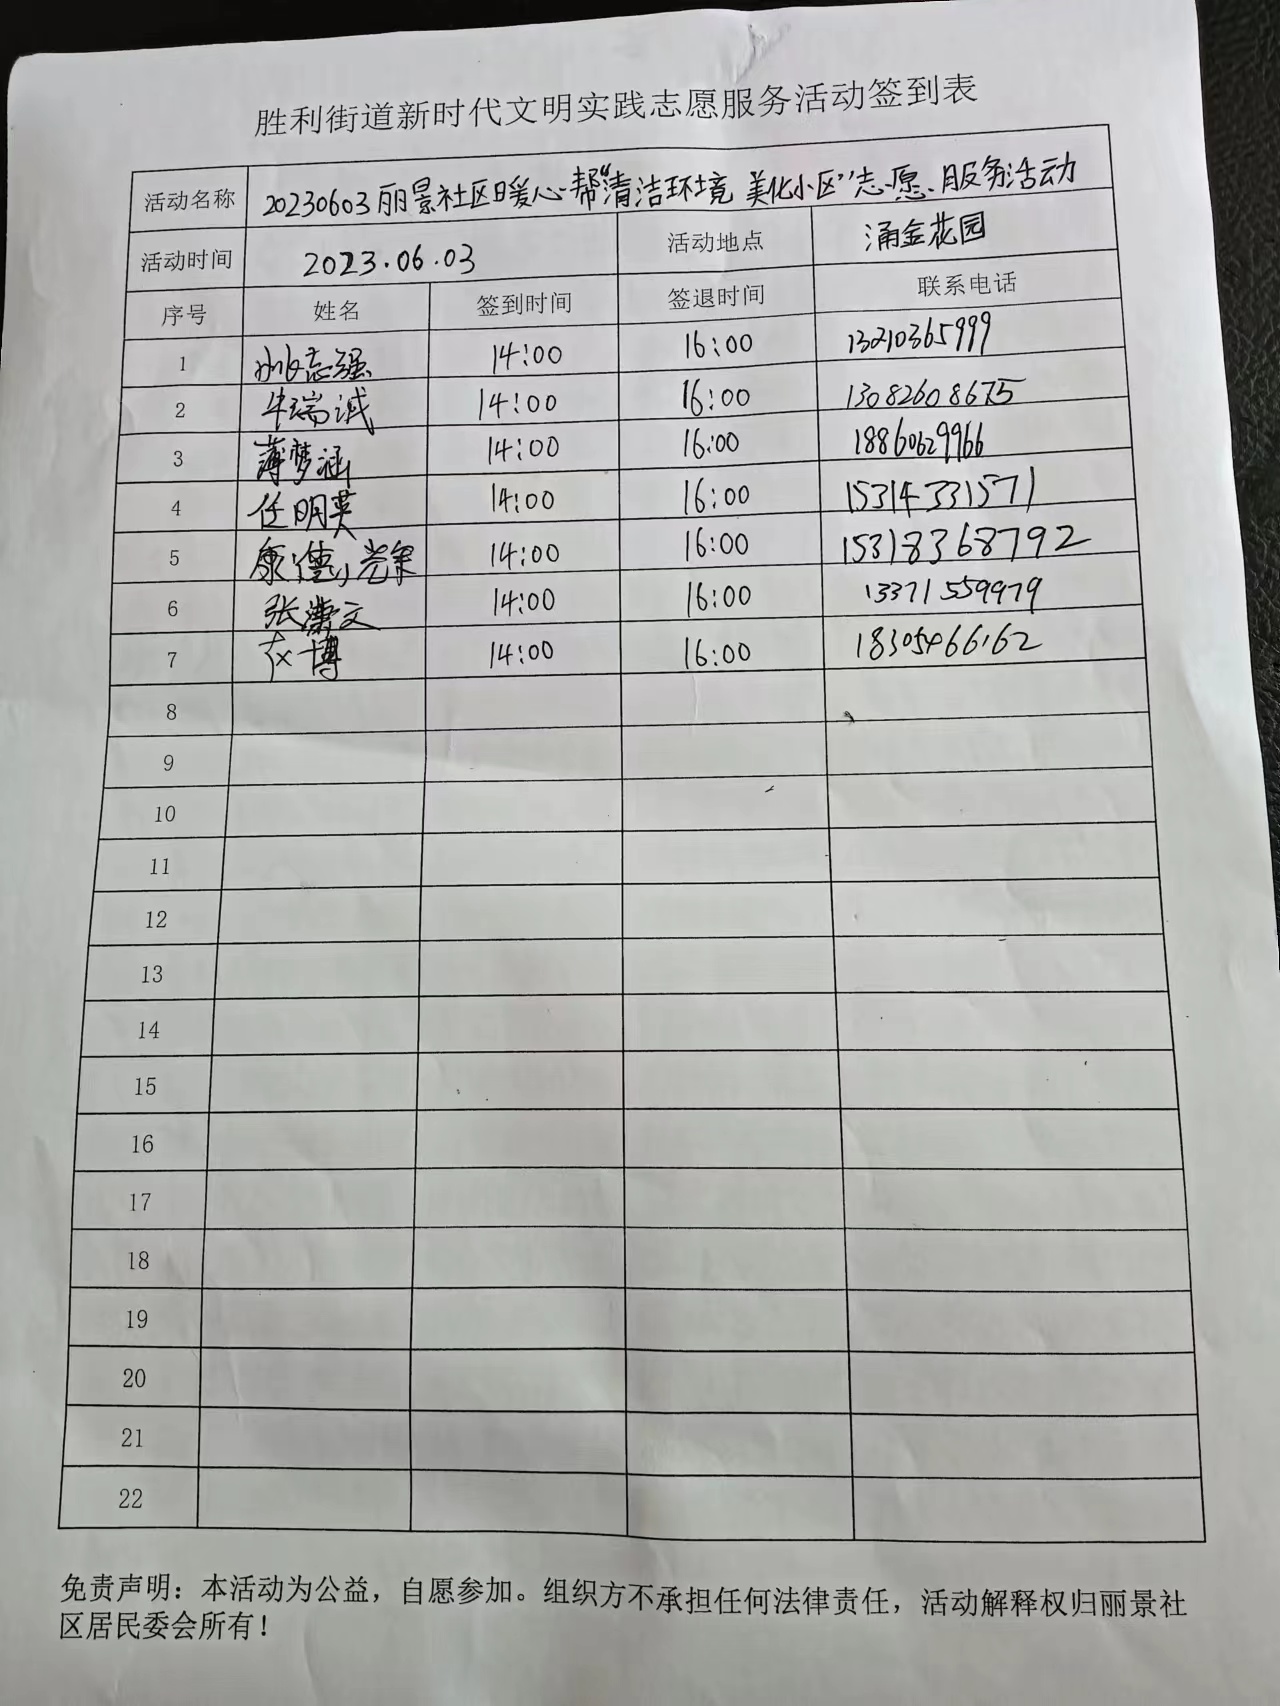 胜利街道新时代文明实践志愿服务活动签到表
活动名称 20230603丽景社区暖心帮“清洁环境 美化小区”志愿服务活动
活动时间 2023.06.03 活动地点 涌金花园
序号 姓名 签到时间 签退时间 联系电话
1 志强 14:00 16:00 13210365999
2 牛瑞诚 14:00 16:00 13082608675
3 薄梦涵 14:00 16:00 18860629966
4 任明英 14:00 16:00 15314331571
5 康 14:00 16:00 15318368792
6 张 文 14:00 16:00 13371559979
7 博 14:00 16:00 18305466162
8
9
10
11
12
13
14
15
16
17
18
19
20
21
22
免责声明：本活动为公益，自愿参加。组织方不承担任何法律责任，活动解释权归丽景社
区居民委会所有！